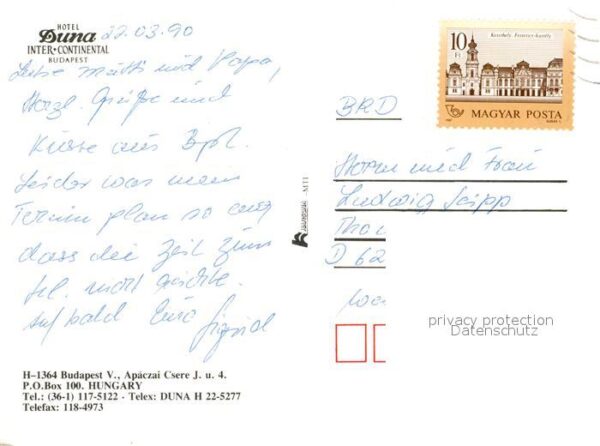 HOTEL
Duna
INTER·CONTINENTAL
BUDAPEST
22.03.90
Liebe Mutti und Papa,
Herzl. Grüße und
Küsse aus Bpt.
Leider war mein
Terminplan so eng
dass die Zeit zum
Tel. nicht reichte.
Auf bald Eure Sigrid
H–1364 Budapest V., Apáczai Csere J. u. 4.
P.O.Box 100. HUNGARY
Tel.: (36-1) 117-5122 - Telex: DUNA H 22-5277
Telefax: 118-4973
MTI
10
Ft
Keszthely, Festetics-kastély
MAGYAR POSTA
BRD
Herrn und Frau
Ludwig Sipp
D 62
privacy protection
Datenschutz